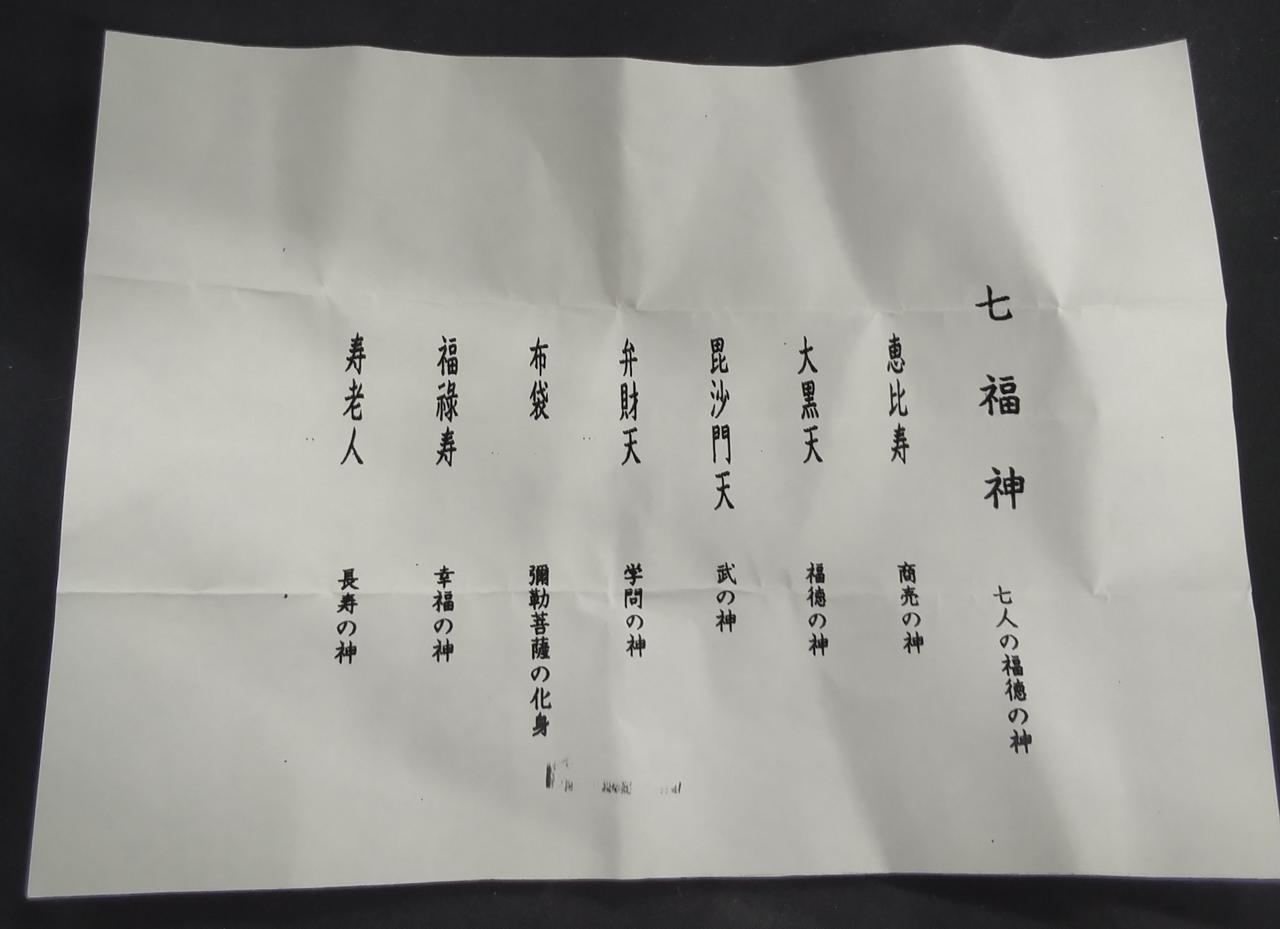 七福神　七人の福徳の神
恵比寿　商売の神
大黒天　福徳の神
毘沙門天　武の神
弁財天　学問の神
布袋　彌勒菩薩の化身
福禄寿　幸福の神
寿老人　長寿の神